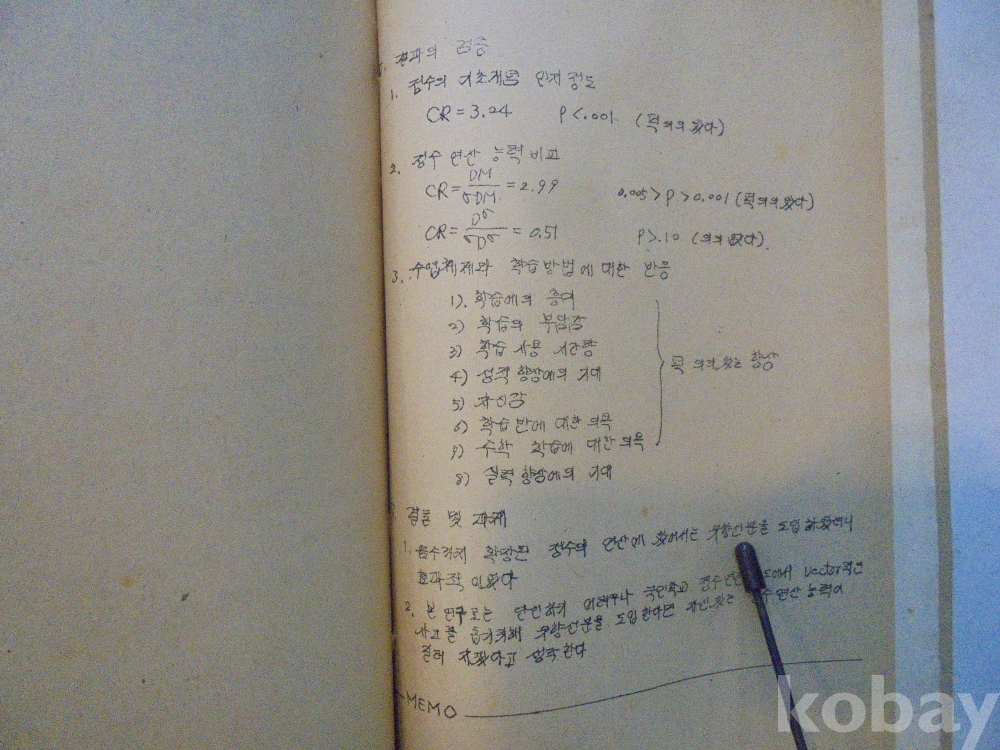 결과의 검증
1. 정수의 기초개념 인지 정도
CR = 3.24 P < .001 (퍽 의의 있다)
2. 정수 연산 능력 비교
CR = DM/σDM = 2.99 0.005 > P > 0.001 (퍽 의의 있다)
CR = Dσ/σDσ = 0.51 P > .10 (의의 없다).
3. 수업체제와 학습방법에 대한 반응
1). 학습에의 흥미
2) 학습의 부담감
3) 학습 사용 시간량
4) 성적 향상에의 기대
5) 자신감
6) 학습반에 대한 의욕
7) 수학 학습에 대한 의욕
8) 실력 향상에의 기대
퍽 의의 있는 향상
결론 및 과제
1. 음수까지 확장된 정수의 연산에 있어서는 유향선분을 도입하였더니
효과적이었다
2. 본 연구로는 단언하기 어려우나 국민학교 정수 에서 vector적인
사고를 유향선분을 도입한다면 자신있는 연산능력이
길러 지겠다고 생각한다
MEMO
kobay